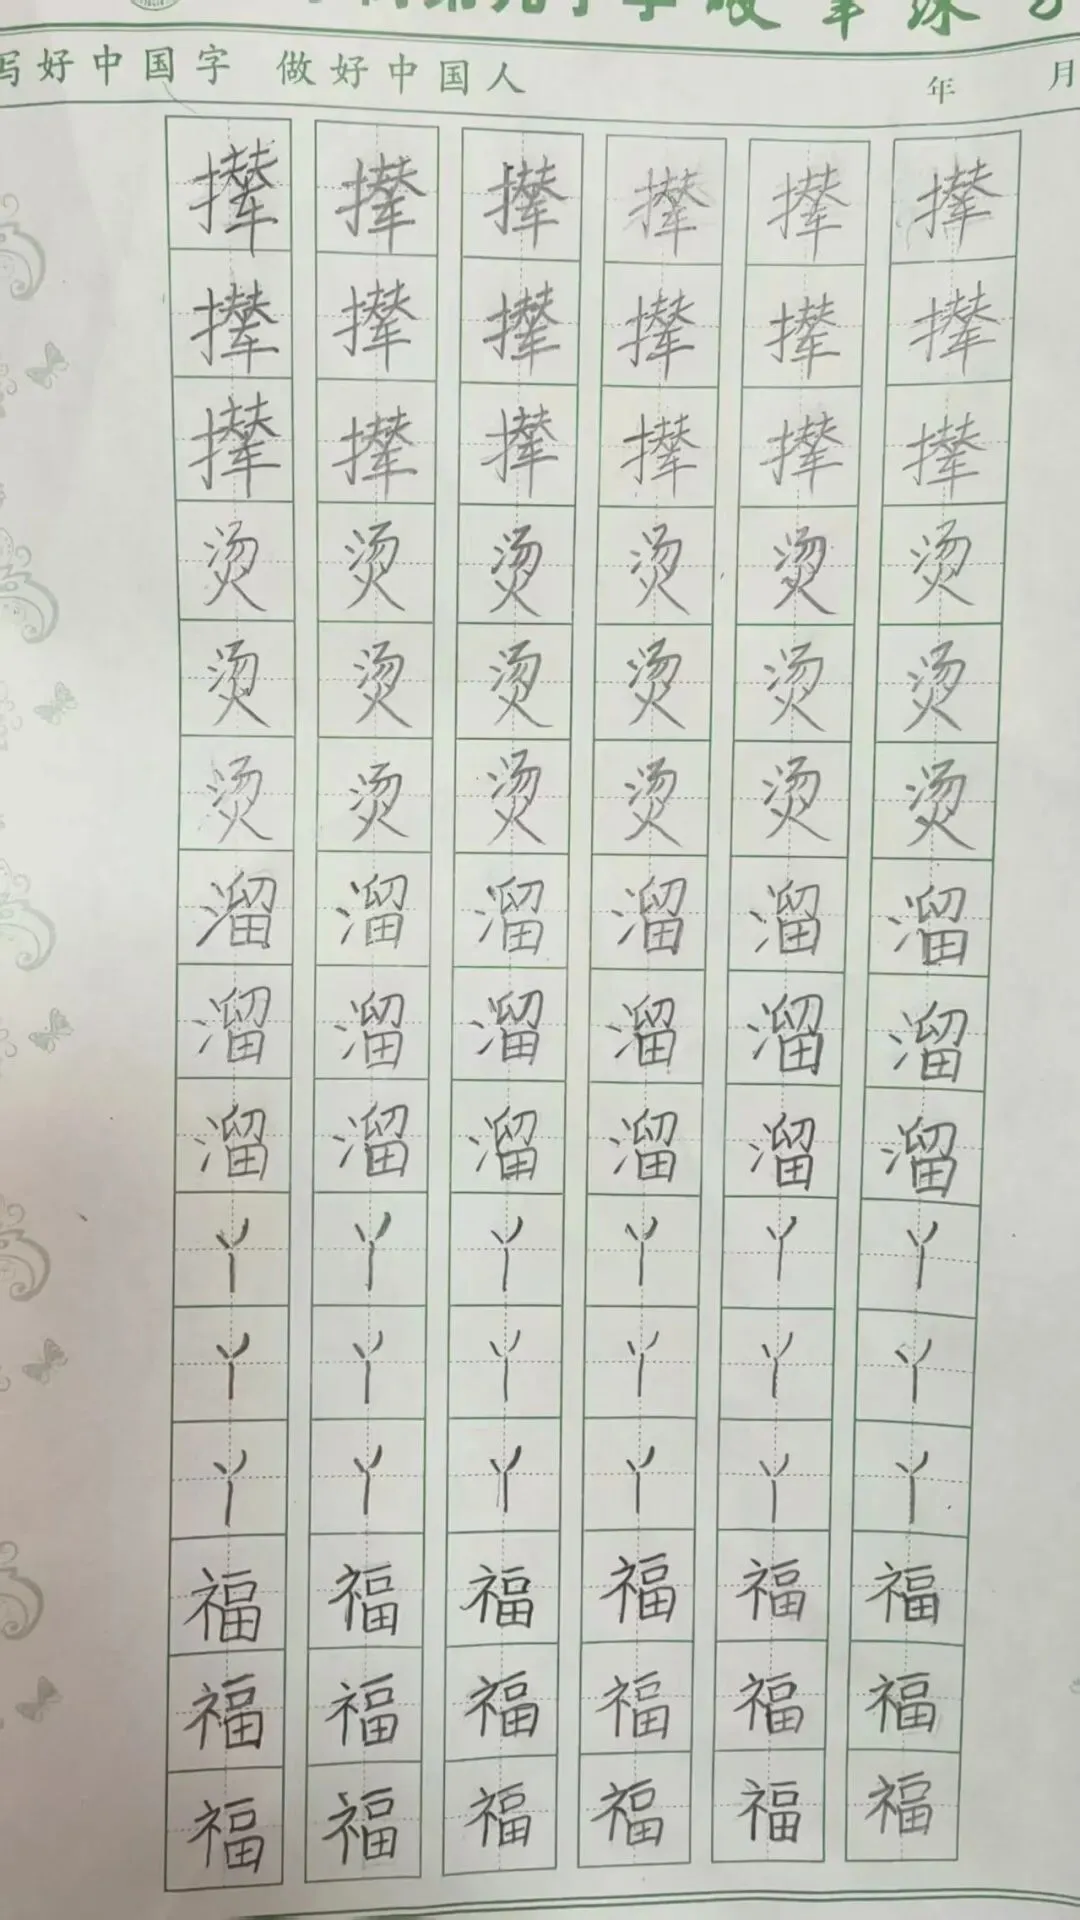 写好中国字 做好中国人 年 月
撵 撵 撵 撵 撵 撵
撵 撵 撵 撵 撵 撵
撵 撵 撵 撵 撵 撵
烫 烫 烫 烫 烫 烫
烫 烫 烫 烫 烫 烫
烫 烫 烫 烫 烫 烫
溜 溜 溜 溜 溜 溜
溜 溜 溜 溜 溜 溜
溜 溜 溜 溜 溜 溜
丫 丫 丫 丫 丫 丫
丫 丫 丫 丫 丫 丫
丫 丫 丫 丫 丫 丫
福 福 福 福 福 福
福 福 福 福 福 福
福 福 福 福 福 福